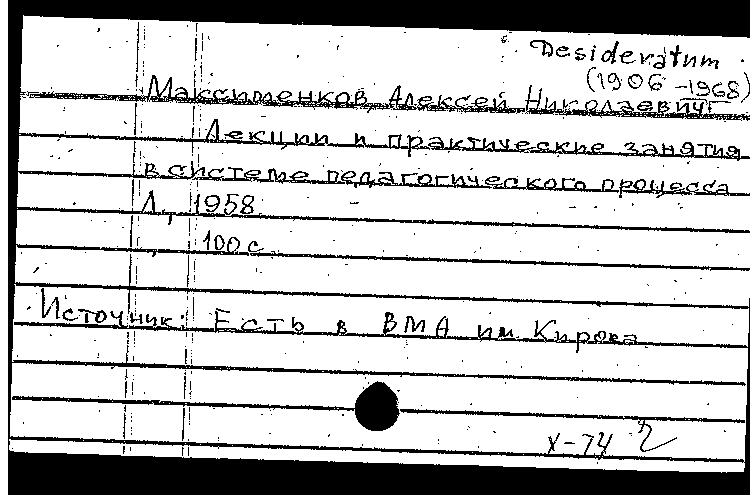 Desideratum
(1906-1968)
Максименков, Алексей Николаевич
Лекции и практические занятия
в системе педагогического процесса
Л., 1958.
100 с.
Источник: Есть в ВМА им. Кирова
X-74